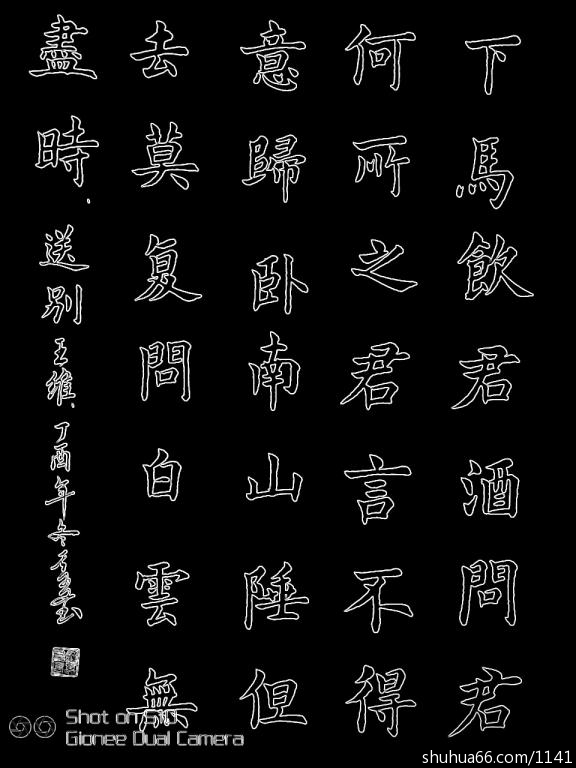 下馬飲君酒問君
何所之君言不得
意歸卧南山陲但
去莫复問白雲無
盡時
送别
王維
丁酉年冬
Shot on S10
Gionee Dual Camera
shuhua66.com/1141